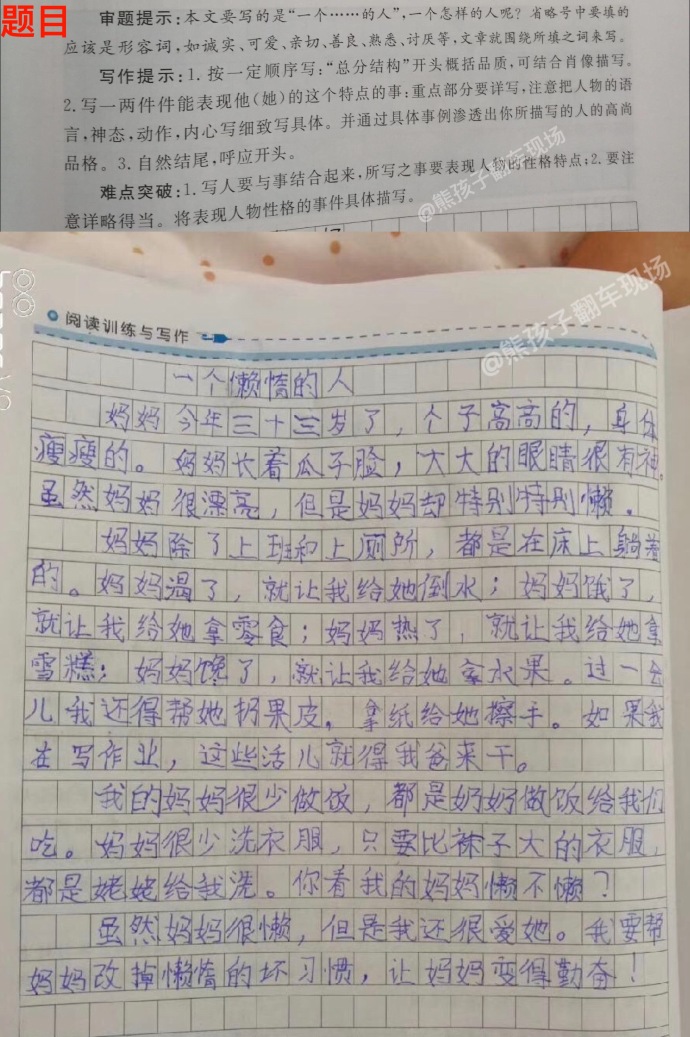 题目
审题提示:本文要写的是“一个……的人”,一个怎样的人呢?省略号中要填的
应该是形容词,如诚实、可爱、亲切、善良、熟悉、讨厌等,文章就围绕所填之词来写。
写作提示:1. 按一定顺序写:“总分结构”开头概括品质,可结合肖像描写。
2.写一两件件能表现他(她)的这个特点的事:重点部分要详写,注意把人物的语
言,神态,动作,内心写细致写具体。并通过具体事例渗透出你所描写的人的高尚
品格。3. 自然结尾,呼应开头。
难点突破:1. 写人要与事结合起来,所写之事要表现人物的性格特点;2. 要注
意详略得当。将表现人物性格的事件具体描写。
@熊孩子翻车现场
@熊孩子翻车现场
阅读训练与写作
一个懒惰的人
妈妈今年三十三岁了,个子高高的,身体
瘦瘦的。妈妈长着瓜子脸,大大的眼睛很有神。
虽然妈妈很漂亮,但是妈妈却特别特别懒。
妈妈除了上班和上厕所,都是在床上躺着
的。妈妈渴了,就让我给她倒水;妈妈饿了,
就让我给她拿零食;妈妈热了,就让我给她拿
雪糕;妈妈馋了,就让我给她拿水果。过一会
儿我还得帮她扔果皮,拿纸给她擦手。如果我
在写作业,这些活儿就得我爸来干。
我的妈妈很少做饭,都是奶奶做饭给我们
吃。妈妈很少洗衣服,只要比袜子大的衣服,
都是姥姥给我洗。你看我的妈妈懒不懒?
虽然妈妈很懒,但是我还很爱她。我要帮
妈妈改掉懒惰的坏习惯,让妈妈变得勤奋!